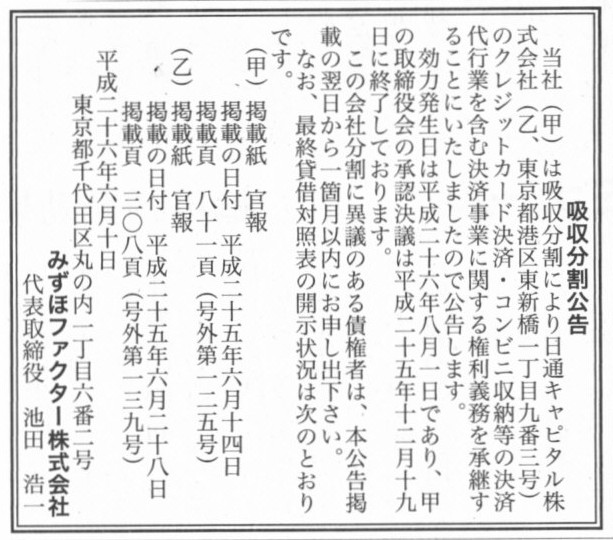 吸収分割公告
当社(甲)は吸収分割により日通キャピタル株
式会社(乙、東京都港区東新橋一丁目九番三号)
のクレジットカード決済・コンビニ収納等の決済
代行業を含む決済事業に関する権利義務を承継す
ることにいたしましたので公告します。
効力発生日は平成二十六年八月一日であり、甲
の取締役会の承認決議は平成二十五年十二月十九
日に終了しております。
この会社分割に異議のある債権者は、本公告掲
載の翌日から一箇月以内にお申し出下さい。
なお、最終貸借対照表の開示状況は次のとおり
です。
(甲)掲載紙 官報
掲載の日付 平成二十五年六月十四日
掲載頁 八十一頁(号外第一二五号)
(乙)掲載紙 官報
掲載の日付 平成二十五年六月二十八日
掲載頁 三〇八頁(号外第一三九号)
平成二十六年六月十日
東京都千代田区丸の内一丁目六番二号
みずほファクター株式会社
代表取締役 池田 浩一